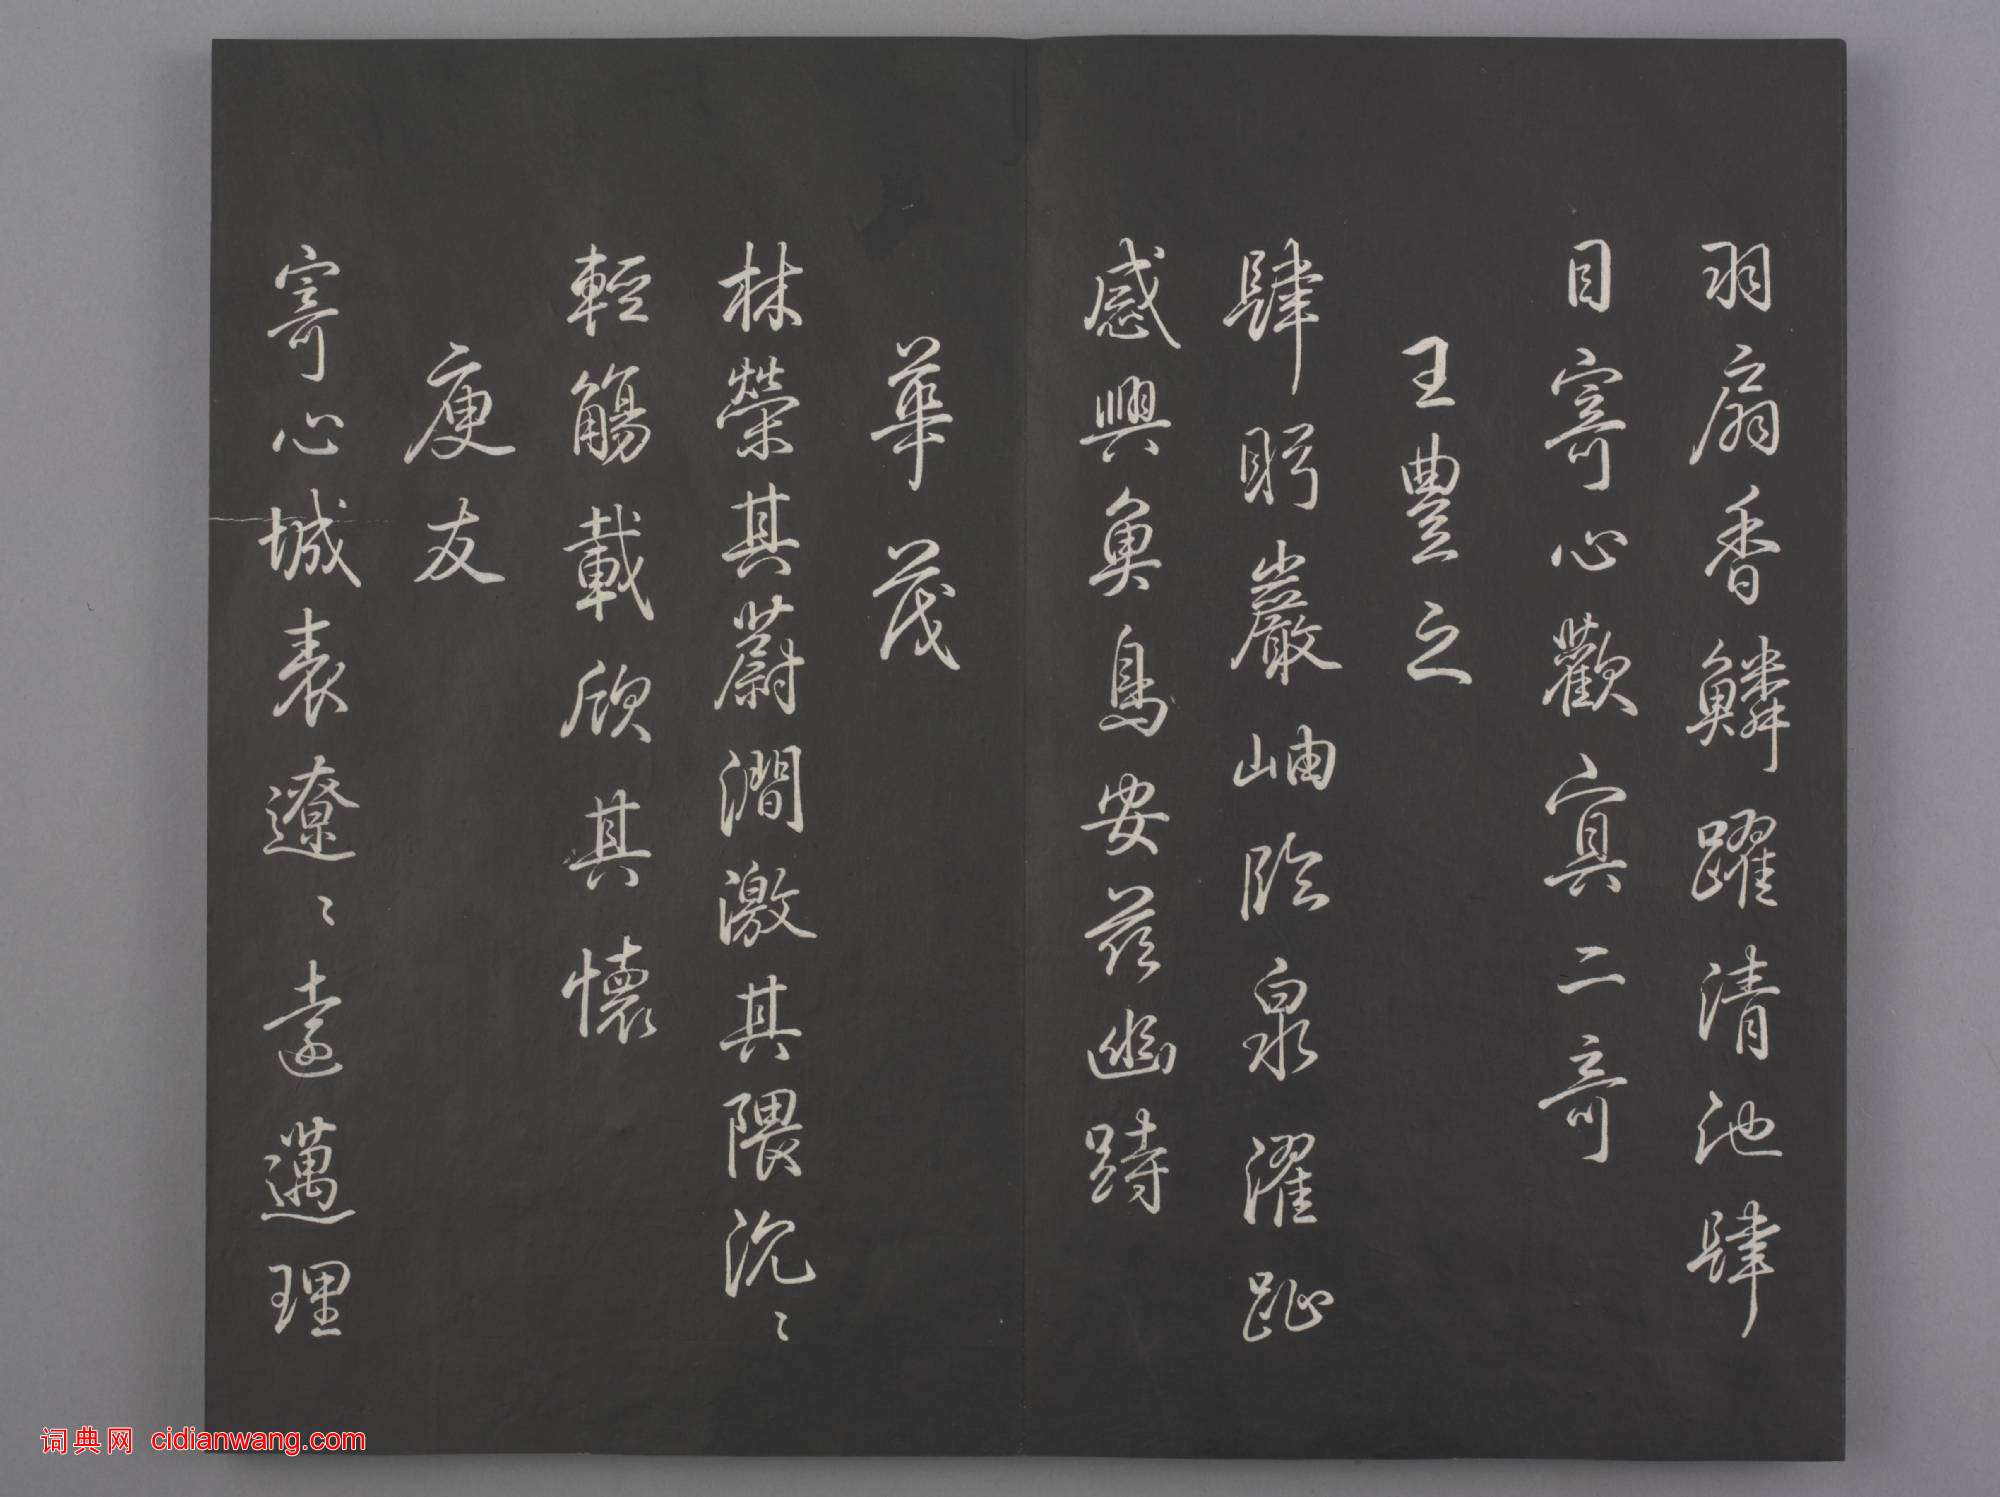 羽扇香鱗躍清池肆
目寄心歡冥二奇
王豊之
肆眄巖岫臨泉濯趾
感興魚鳥安茲幽跱
華茂
林榮其蔚澗激其隈汎〻
輕觴載欣其懷
庾友
寄心域表遼〻遠邁理
词典网 cidianwang.com